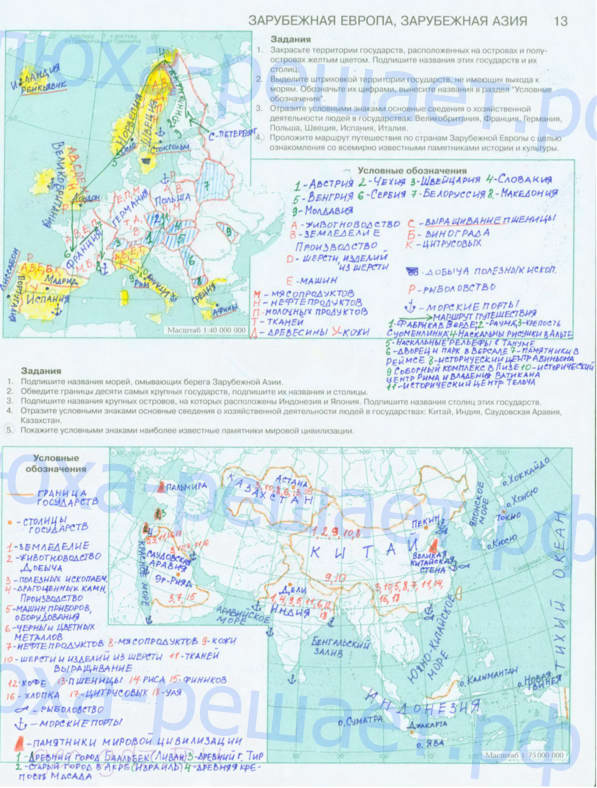 ЗАРУБЕЖНАЯ ЕВРОПА, ЗАРУБЕЖНАЯ АЗИЯ 13
Задания
1. Закрасьте территории государств, расположенных на островах и полу-
островах желтым цветом. Подпишите названия этих государств и их
столиц.
2. Выделите штриховкой территории государств, не имеющих выхода к
морям. Обозначьте их цифрами, вынесите названия в раздел "Условные
обозначения".
3. Отразите условными знаками основные сведения о хозяйственной
деятельности людей в государствах: Великобритания, Франция, Германия,
Польша, Швеция, Испания, Италия.
4. Проложите маршрут путешествия по странам Зарубежной Европы с целью
ознакомления со всемирно известными памятниками истории и культуры.
ИСЛАНДИЯ
РЕЙКЬЯВИК
НОРВЕГИЯ
ШВЕЦИЯ
С-ПЕТЕРБУРГ
СТОКГОЛЬМ
ВЕЛИКОБРИТАНИЯ
ЛОНДОН
ГЕРМАНИЯ
ПОЛЬША
ФРАНЦИЯ
ЛИССАБОН
ПОРТУГАЛИЯ
МАДРИД
ИСПАНИЯ
РИМ
ГРЕЦИЯ
АФИНЫ
Масштаб 1:40 000 000
Условные обозначения
1-АВСТРИЯ 2-ЧЕХИЯ 3-ШВЕЙЦАРИЯ 4-СЛОВАКИЯ
5-ВЕНГРИЯ 6-СЕРБИЯ 7-БЕЛОРУССИЯ 8-МАКЕДОНИЯ
9-МОЛДАВИЯ
А-ЖИВОТНОВОДСТВО
В-ЗЕМЛЕДЕЛИЕ
ПРОИЗВОДСТВО
D-ШЕРСТИ, ИЗДЕЛИЙ
ИЗ ШЕРСТИ
Е-МАШИН
С-ВЫРАЩИВАНИЕ ПШЕНИЦЫ
Б-ВИНОГРАДА
К-ЦИТРУСОВЫХ
-ДОБЫЧА ПОЛЕЗНЫХ ИСКОП.
Р-РЫБОЛОВСТВО
-МОРСКИЕ ПОРТЫ
МАРШРУТ ПУТЕШЕСТВИЯ
М-МЯСОПРОДУКТОВ
Н-НЕФТЕПРОДУКТОВ
П-МОЛОЧНЫХ ПРОДУКТОВ
Т-ТКАНЕЙ
Л-ДРЕВЕСИНЫ У-КОЖИ
1-ФАБРИКА В ВЕРЛЕ 2-РАУМА, 3-КРЕПОСТЬ
СУОМЕНЛИННА 4-НАСКАЛЬНЫ РИСУНКИ В АЛЬТЕ
5-НАСКАЛЬНЫЕ РЕЛЬЕФЫ В ТАНУМЕ
6-ДВОРЕЦ И ПАРК В ВЕРСАЛЕ 7-ПАМЯТНИКИ В
РЕЙМСЕ 8-ИСТОРИЧЕСКИЙ ЦЕНТР АВИНЬОНА
9 СОБОРНЫЙ КОМПЛЕКС В ПИЗЕ 10-ИСТОРИЧЕСКИЙ
ЦЕНТР РИМА И ВЛАДЕНИЯ ВАТИКАНА
11-ИСТОРИЧЕСКИЙ ЦЕНТР ТЕЛЧА
Задания
1. Подпишите названия морей, омывающих берега Зарубежной Азии.
2. Обведите границы десяти самых крупных государств, подпишите их названия и столицы.
3. Подпишите названия крупных островов, на которых расположены Индонезия и Япония. Подпишите названия столиц этих государств.
4. Отразите условными знаками основные сведения о хозяйственной деятельности людей в государствах: Китай, Индия, Саудовская Аравия,
Казахстан.
5. Покажите условными знаками наиболее известные памятники мировой цивилизации.
Условные
обозначения
ГРАНИЦА
ГОСУДАРСТВ
-СТОЛИЦЫ
ГОСУДАРСТВ
1-ЗЕМЛЕДЕЛИЕ
2-ЖИВОТНОВОДСТВО
ДОБЫЧА
3-ПОЛЕЗНЫХ ИСКОПАЕМ.
4-ДРАГОЦЕННЫХ КАМН.
ПРОИЗВОДСТВО
5-МАШИН, ПРИБОРОВ,
ОБОРУДОВАНИЯ
6-ЧЕРНЫ И ЦВЕТНЫХ
МЕТАЛЛОВ
7-НЕФТЕПРОДУКТОВ 8-МЯСОПРОДУКТОВ 9-КОЖИ
10-ШЕРСТИ И ИЗДЕЛИЙ ИЗ ШЕРСТИ 11-ТКАНЕЙ
ВЫРАЩИВАНИЕ
12-КОФЕ 13-ПШЕНИЦЫ 14-РИСА 15-ФИНИКОВ
16-ХЛОПКА 17-ЦИТРУСОВЫХ 18-ЧАЯ
-РЫБОЛОВСТВО
-МОРСКИЕ ПОРТЫ
-ПАМЯТНИКИ МИРОВОЙ ЦИВИЛИЗАЦИИ
1-ДРЕВНИЙ ГОРОД БААЛЬБЕК (ЛИВАН) 3-ДРЕВНИЙ Г. ТИР
2-СТАРЫЙ ГОРОД В АКРЕ (ИЗРАИЛЬ) 4-ДРЕВНЯЯ КРЕ-
ПОСТЬ МАСАДА
ПАЛЬМИРА
АСТАНА
КАЗАХСТАН
САУДОВСКАЯ
АРАВИЯ
ЭР-РИЯД
3,7,15
КРАСНОЕ МОРЕ
АРАВИЙСКОЕ
МОРЕ
ДЕЛИ
ИНДИЯ
БЕНГАЛЬСКИЙ
ЗАЛИВ
КИТАЙ
ПЕКИН
ВЕЛИКАЯ
КИТАЙСКАЯ
СТЕНА
9,10
ЯПОНСКОЕ
МОРЕ
о.ХОККАЙДО
о.ХОНСЮ
ТОКИО
о.КЮСЮ
ТИХИЙ ОКЕАН
ЮЖНО-КИТАЙСКОЕ
МОРЕ
о.КАЛИМАНТАН
о.НОВАЯ
ГВИНЕЯ
ИНДОНЕЗИЯ
о.СУМАТРА
ДЖАКАРТА
о.ЯВА
Масштаб 1:75 000 000
юха-решает.рф